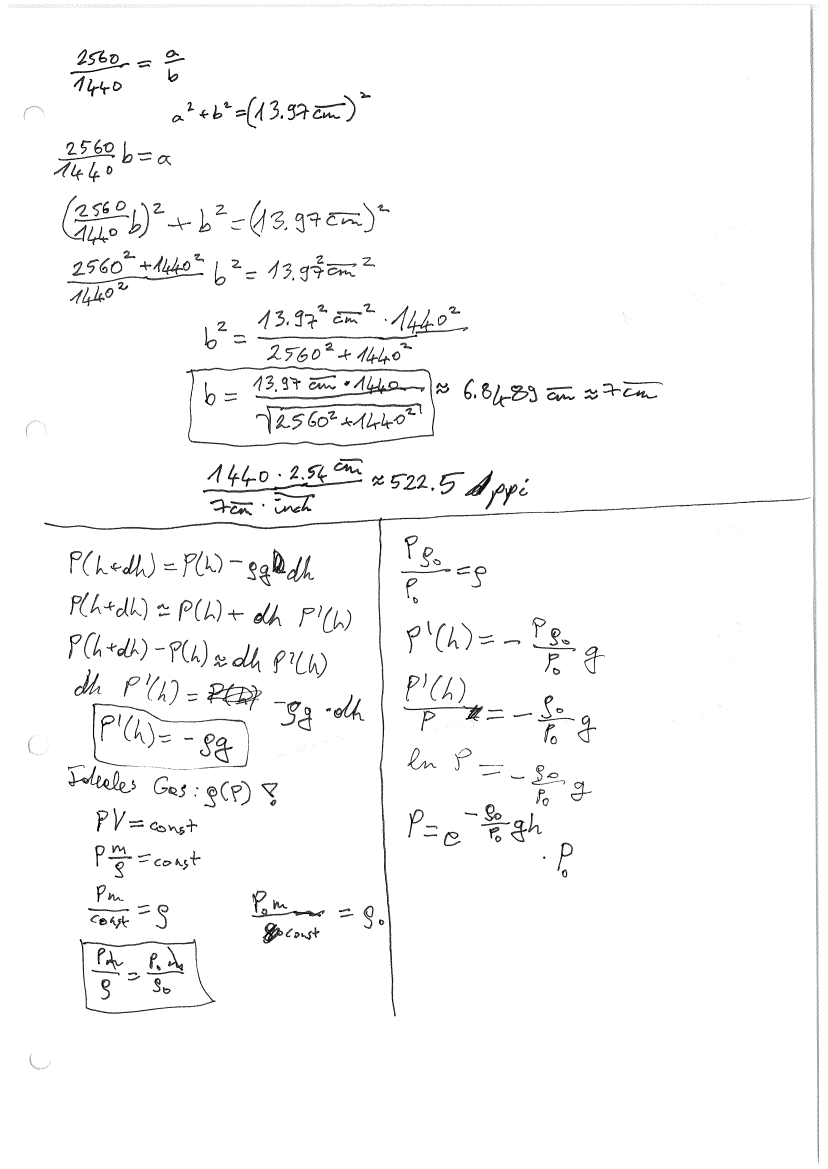 2560/1440 = a/b
a² + b² = (13.97 cm)²
2560/1440 b = a
(2560/1440 b)² + b² = (13.97 cm)²
(2560² + 1440²)/1440² b² = 13.97² cm²
b² = (13.97² cm² · 1440²)/(2560² + 1440²)
b = (13.97 cm · 1440)/√(2560² + 1440²) ≈ 6.8489 cm ≈ 7 cm
(1440 · 2.54 cm)/(7 cm · inch) ≈ 522.5 ppi
P(h+dh) = P(h) - ρg dh
P(h+dh) ≈ P(h) + dh P'(h)
P(h+dh) - P(h) ≈ dh P'(h)
dh P'(h) = -ρg · dh
P'(h) = -ρg
Ideales Gas: ρ(P) !
PV = const
P m/ρ = const
Pm/const = ρ
P₀m/const = ρ₀
Pm/ρ = P₀m/ρ₀
Pρ₀/P₀ = ρ
P'(h) = - Pρ₀/P₀ g
P'(h)/P = - ρ₀/P₀ g
ln P = - ρ₀/P₀ g
P = e^(-ρ₀/P₀ gh) · P₀